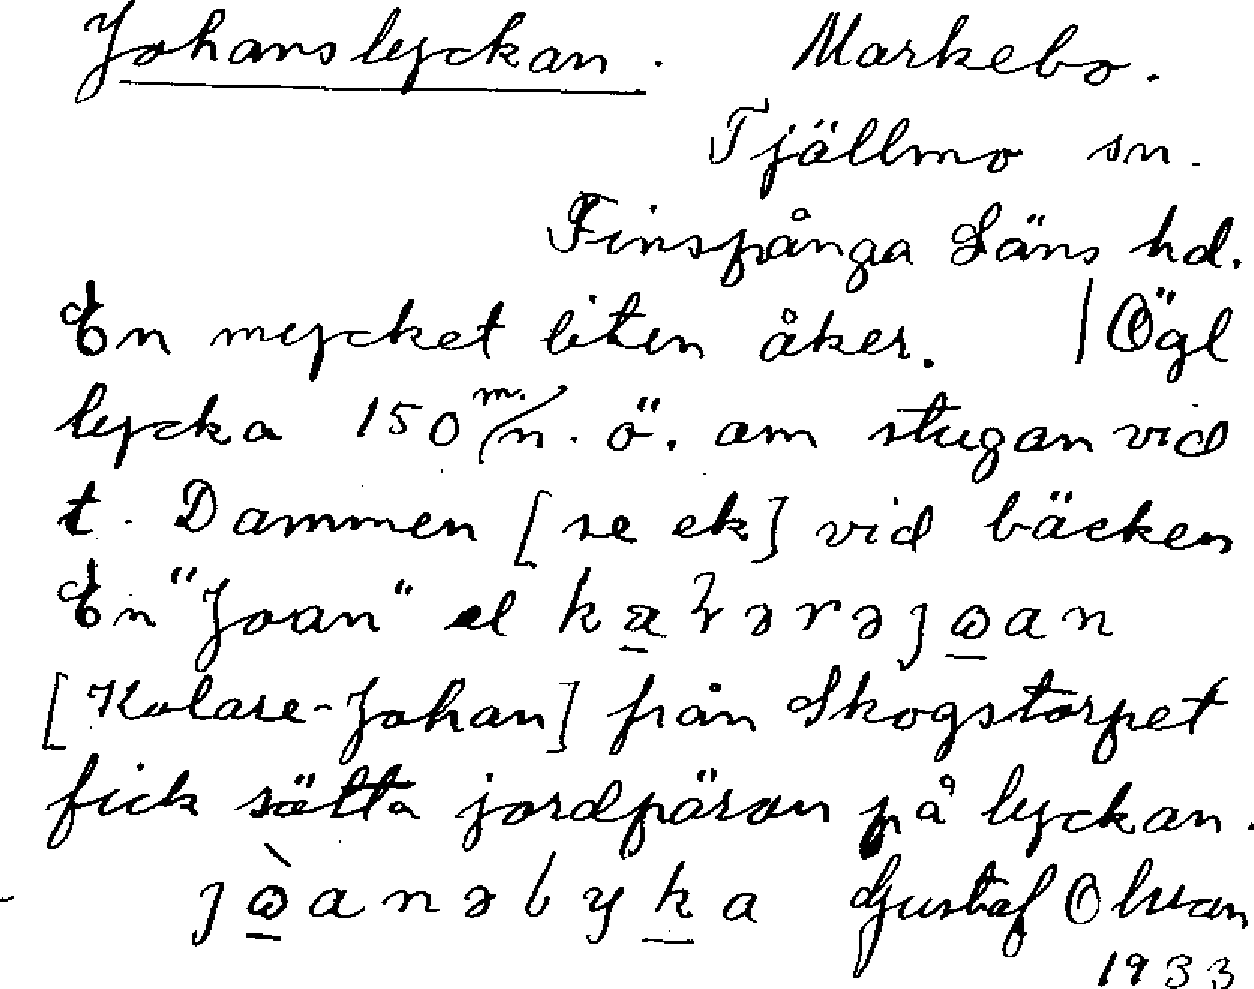 Johanslyckan. Markebo.
Tjällmo sn.
Finspånga Läns hd.
En mycket liten åker. | Ögl
lycka 150 m. n. ö. om stugan vid
t. Dammen [se ek] vid bäcken
En "Joan" el
[Kolare-Johan] från Skogstorpet
fick sätta jordpäron på lyckan.
Gustaf Olsson
1933